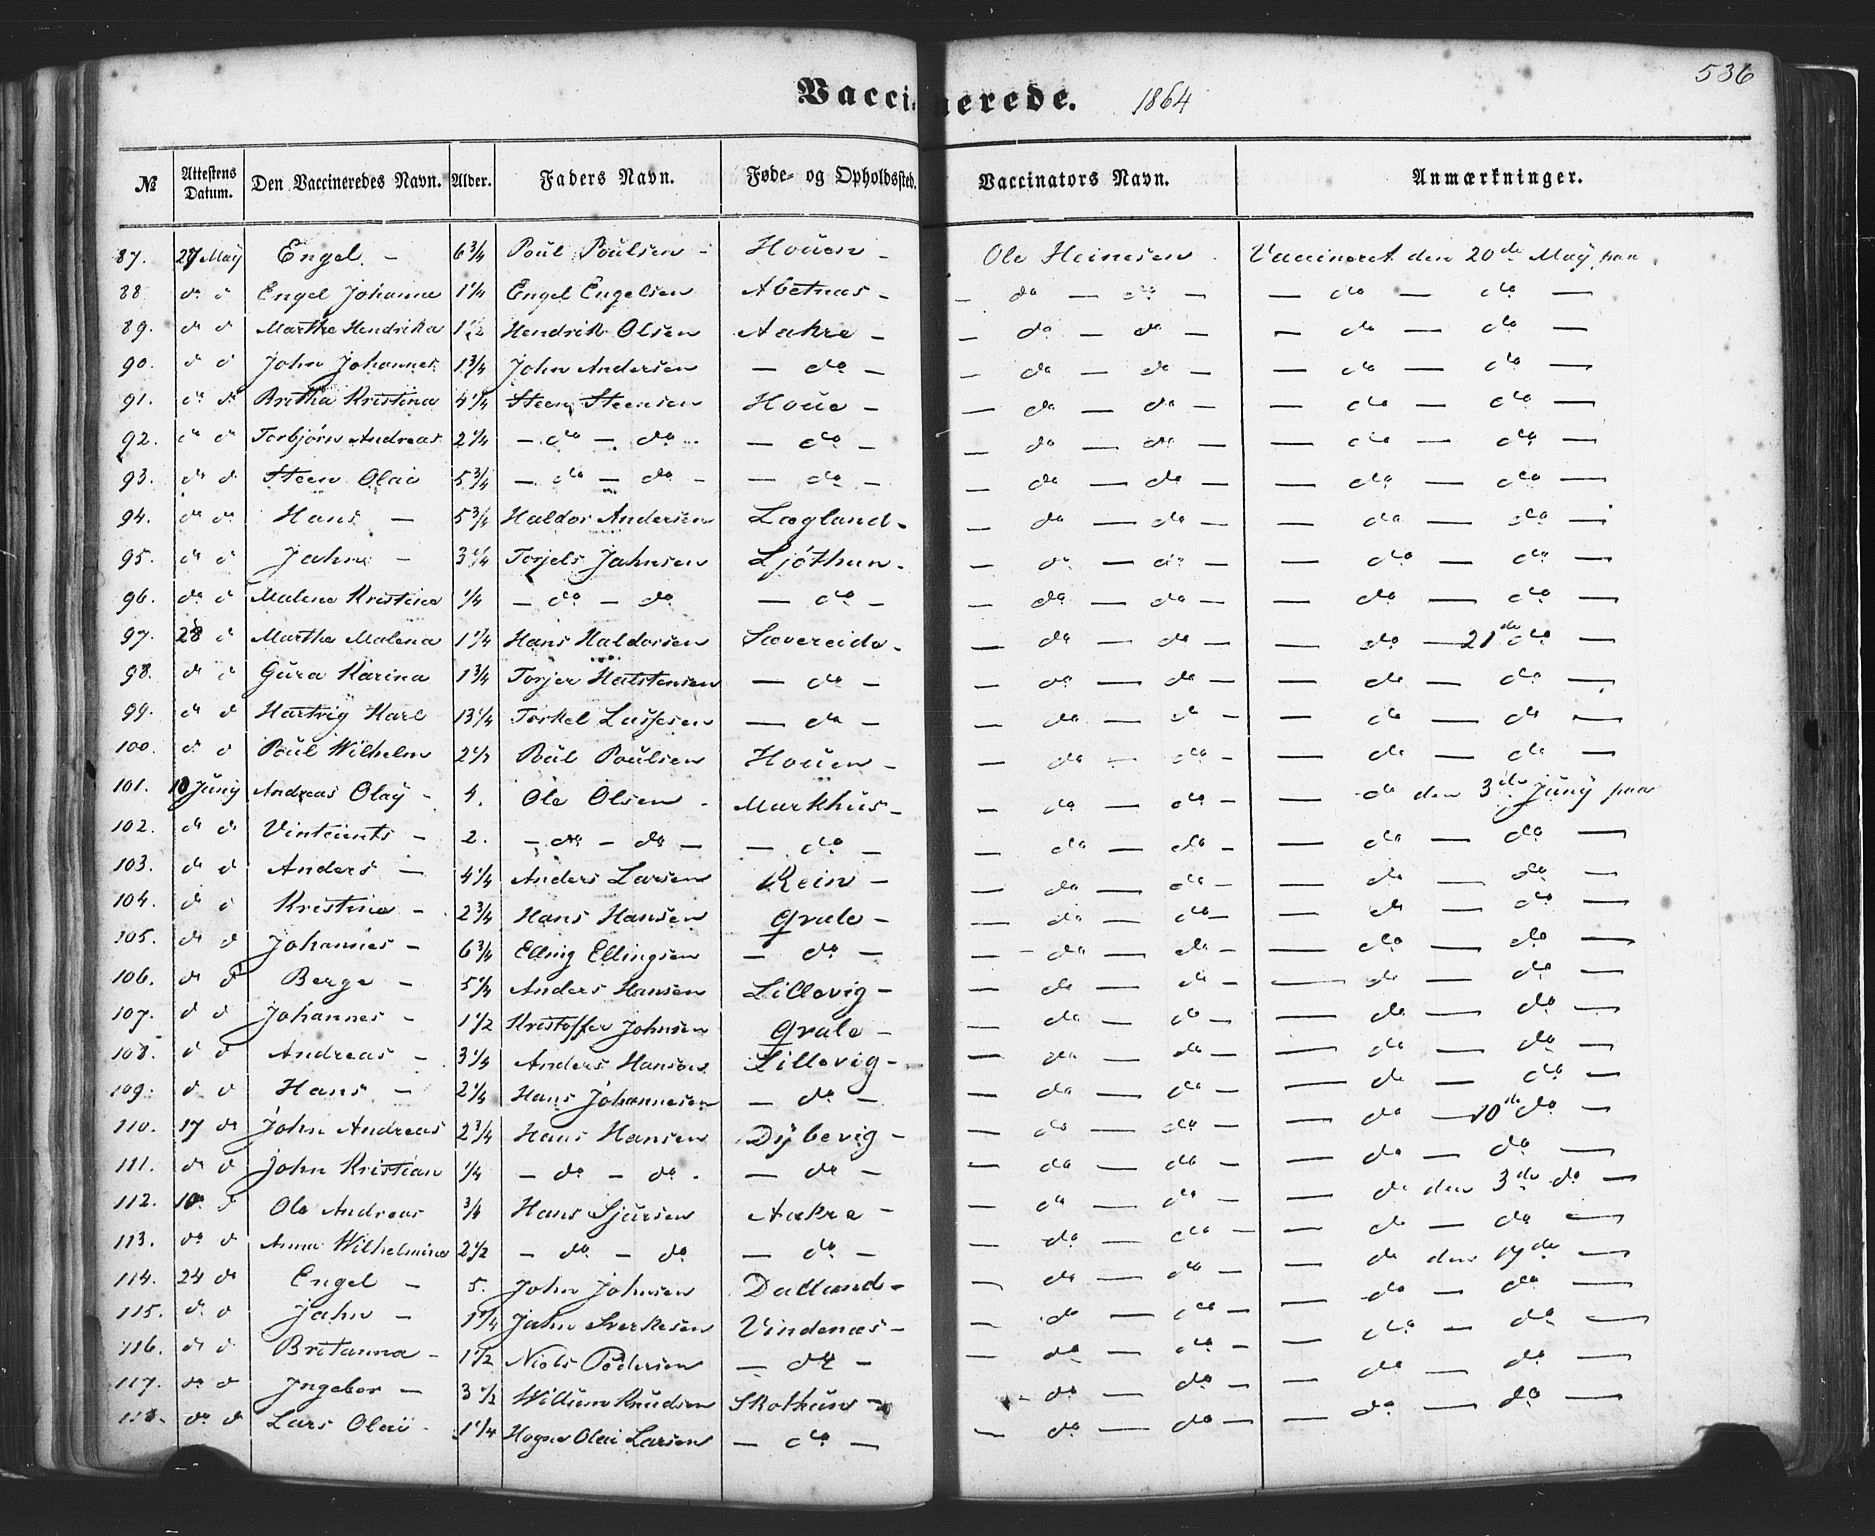 536
Vaccinerede. 1864
№ Attestens Datum. Den Vaccineredes Navn. Alder. Faders Navn. Føde- og Opholdssted. Vaccinators Navn. Anmærkninger.
87. 27 May Engel - 6¾ Poul Poulsen - Houen - Ole Heinesen Vaccineret den 20de May paa
88 do d Engel Johanna 1¼ Engel Engelsen Abetnæs - - do - do - - do - do -
89. do d Martha Hendrika 1½ Hendrik Olsen Aakre - - do - do - - do - do -
90. do d John Johannes 1¾ John Andersen - do - - do - do - - do - do -
91. do do Britha Kristina 4¼ Steen Steensen Houe - - do - do - - do - do -
92. do d Torbjörn Andreas 2¼ - do - do - do - - do - do - - do - do -
93. do d Steen Olai 5¾ - do - do - - do - - do - do - - do - do -
94. do do Hans - 5¾ Haldor Andersen Lægland - - do - do - - do - do -
95. do d Jahn - 3¼ Torjels Jahnsen Ljóthun - - do - do - - do - do -
96. do d Malena Kristina ¼ - do - do - do - - do - do - - do - do -
97. 28 d Martha Malena 1¼ Hans Haldorsen Sævereide - - do - do - - do - 21de do -
98. do d Gúra Karina 1¾ Torjer Halstensen - do - - do - do - - do - do -
99. do d Hartvig Karl 13¼ Torkel Lassesen - do - - do - do - - do - do -
100. do d Poul Wilhelm 2½ Poul Poulsen Houen - - do - do - - do - do -
101. 10 Juny Andreas Olay - 4. Ole Olsen - Markhus - - do - do - - do den 3de Juny paa
102. do do Vintcents - 2. - do - do - - do - - do - do - - do - do -
103. do d Anders - 4¼ Anders Larsen Rein - - do - do - - do - do -
104. do d Kristina - 2¾ Hans Hansen Grale - - do - do - - do - do -
105. do d Johannes - 6¾ Elling Ellingsen - do - - do - do - - do - do -
106. do d Berge - 5¼ Anders Hansen Lillevig - - do - do - - do - do -
107. d d Johannes - 1½ Kristoffer Johnsen Grale - - do - do - - do - do -
108. d d Andreas - 3¼ Anders Hansen Lillevig - - do - do - - do - do -
109. d d Hans - 2¼ Hans Johannesen - do - - do - do - - do - do -
110. 17 do John Andreas 2¾ Hans Hansen Dybevig - - do - do - - do - 10de do -
111. do d John Kristian ¼ - do - do - do - - do - do - - do - do -
112. 10 d Ole Andreas ¾ Hans Sjursen Aakre - - do - do - - do den 3de do -
113. do d Anna Wilhelmina 2½ - do - do - do - - do - do - - do - do -
114. 24 do Engel - 5. John Johnsen Dadland - - do - do - - do den 17de -
115. do d Jahn - 1¼ Jahn Sverkesen Vindenæs - - do - do - - do - do -
116. do d Britanna - 1½ Niels Pedersen - do - - do - do - - do - do -
117. do d Ingebor - 3½ Willum Knudsen Skothun - - do - do - - do - do -
118. do d Lars Olai - 1¼ Hogne Olai Larsen - do - - do - do - - do - do -